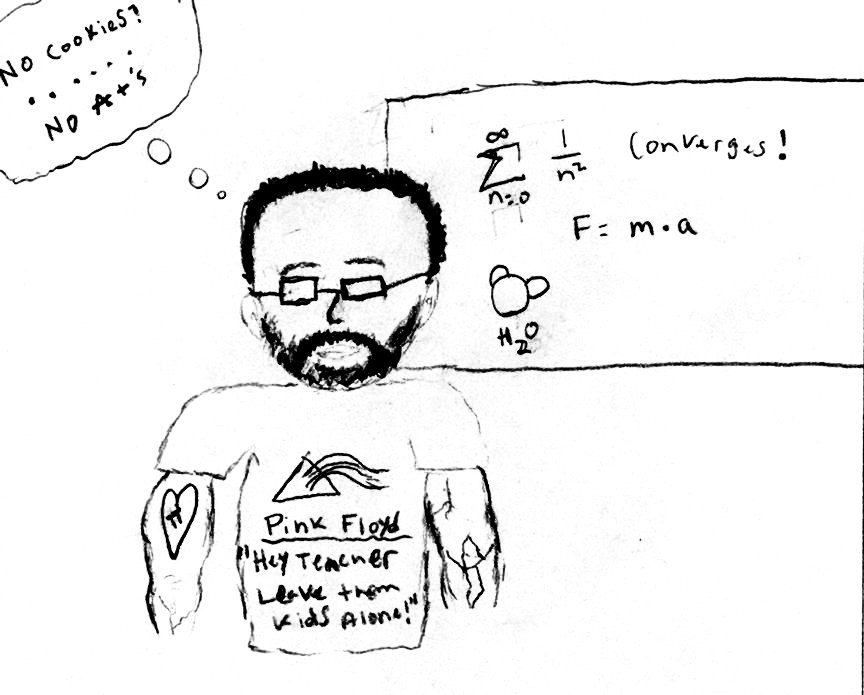 No cookies?
......
No A+'s
∞
∑ 1/n² Converges!
n=0
F = m·a
H₂O
π
Pink Floyd
"Hey Teacher
Leave them
Kids Alone!"